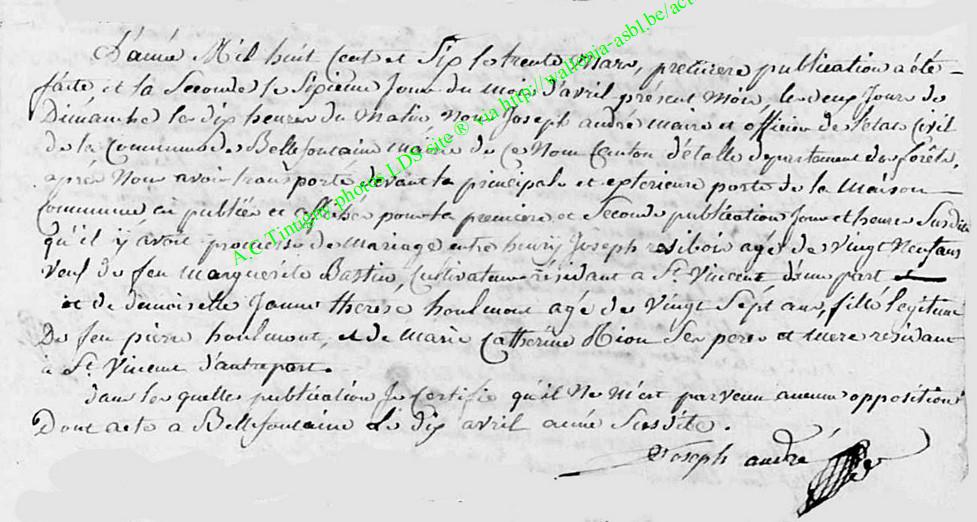 L'anné Mil huit Cent et Six le trente Mars, premiere publication a été
faite et la Seconde le Sixieme Jour du Mois d'avril présent Mois, les deux Jours de
Dimanche les dix heures du Matin Nous Joseph andré Maire et officier de l'etat Civil
de la Commune de Bellefontaine Mairie de Ce Nom Canton d'étalle departement des forêts,
après Nous avoir transporté devant la principale et exterieure porte de la Maison
Commune en publiée et affichée pour la premiere et Seconde publication Jour et heures Susdits
qu'il y avoit promesse de Mariage entre henry Joseph resibois agé de Vingt Neuf ans
Veuf de feu Marguerite Bastin, Cultivateur résidant a St Vincent d'une part
et de demoiselle Jeanne therese houlmont agé de Vingt Sept ans, fille legitime
De feu pierre houlmont, et de Marie Catherine Rion Ses pere et mere résidant
à St Vincent d'autre part.
dans les quelles publication Je Certifie qu'il Ne M'est parvenu aucune opposition
Dont acte a Bellefontaine le dix avril anné Susdite.
Joseph andré
A.C.Tintigny photos LDS site ® via http://wallonia-asbl.be/act